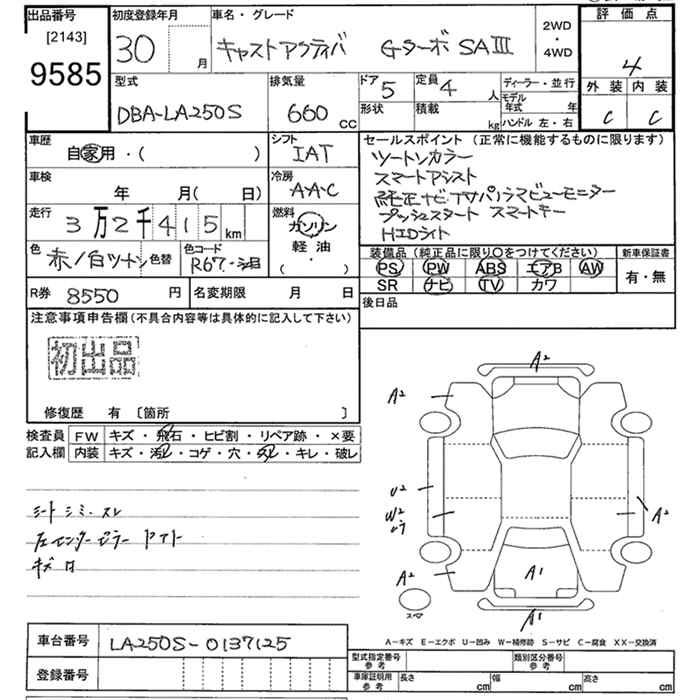 出品番号
[2143]
9585
初度登録年月
30
月
車名・グレード
キャストアクティバ Gターボ SAⅢ
2WD
・
4WD
評価点
4
外装 内装
C C
型式
DBA-LA250S
排気量
660 CC
ドア 5
形状
定員 4 人
積載 kg
ディーラー・並行
モデル年式 年
ハンドル 左・右
車歴
自家用・( )
シフト
IAT
車検
年 月(日)
冷房
AAC
走行
3万2千415km
燃料
ガソリン
軽油
( ・ )
色
赤/白ツートン 色替
色コード
R67
セールスポイント (正常に機能するものに限ります)
ツートンカラー
スマートアシスト
純正ナビTVパノラマビューモニター
プッシュスタート スマートキー
HIDライト
装備品 (純正品に限り○をつけてください)
PS PW ABS エアB AW
SR ナビ TV カワ
新車保証書
有・無
R券 8550 円
名変期限 月 日
後日品
注意事項申告欄(不具合内容等は具体的に記入して下さい)
初出品
修復歴 有 〔箇所 〕
検査員
記入欄
FW キズ・飛石・ヒビ割・リペア跡・×要
内装 キズ・汚レ・コゲ・穴・スレ・キレ・破レ
シートシミ・スレ
左センターピラー
キズ
A2
A2
U2
W2
A2
A2
A1
A1
スペア
A−キズ E−エクボ U−凹み W−補修跡 S−サビ C−腐食 XX−交換済
車台番号 LA250S-0137125
登録番号
型式指定番号
参考
類別区分番号
参考
車庫証明用
参考
長さ cm 幅 cm 高さ cm